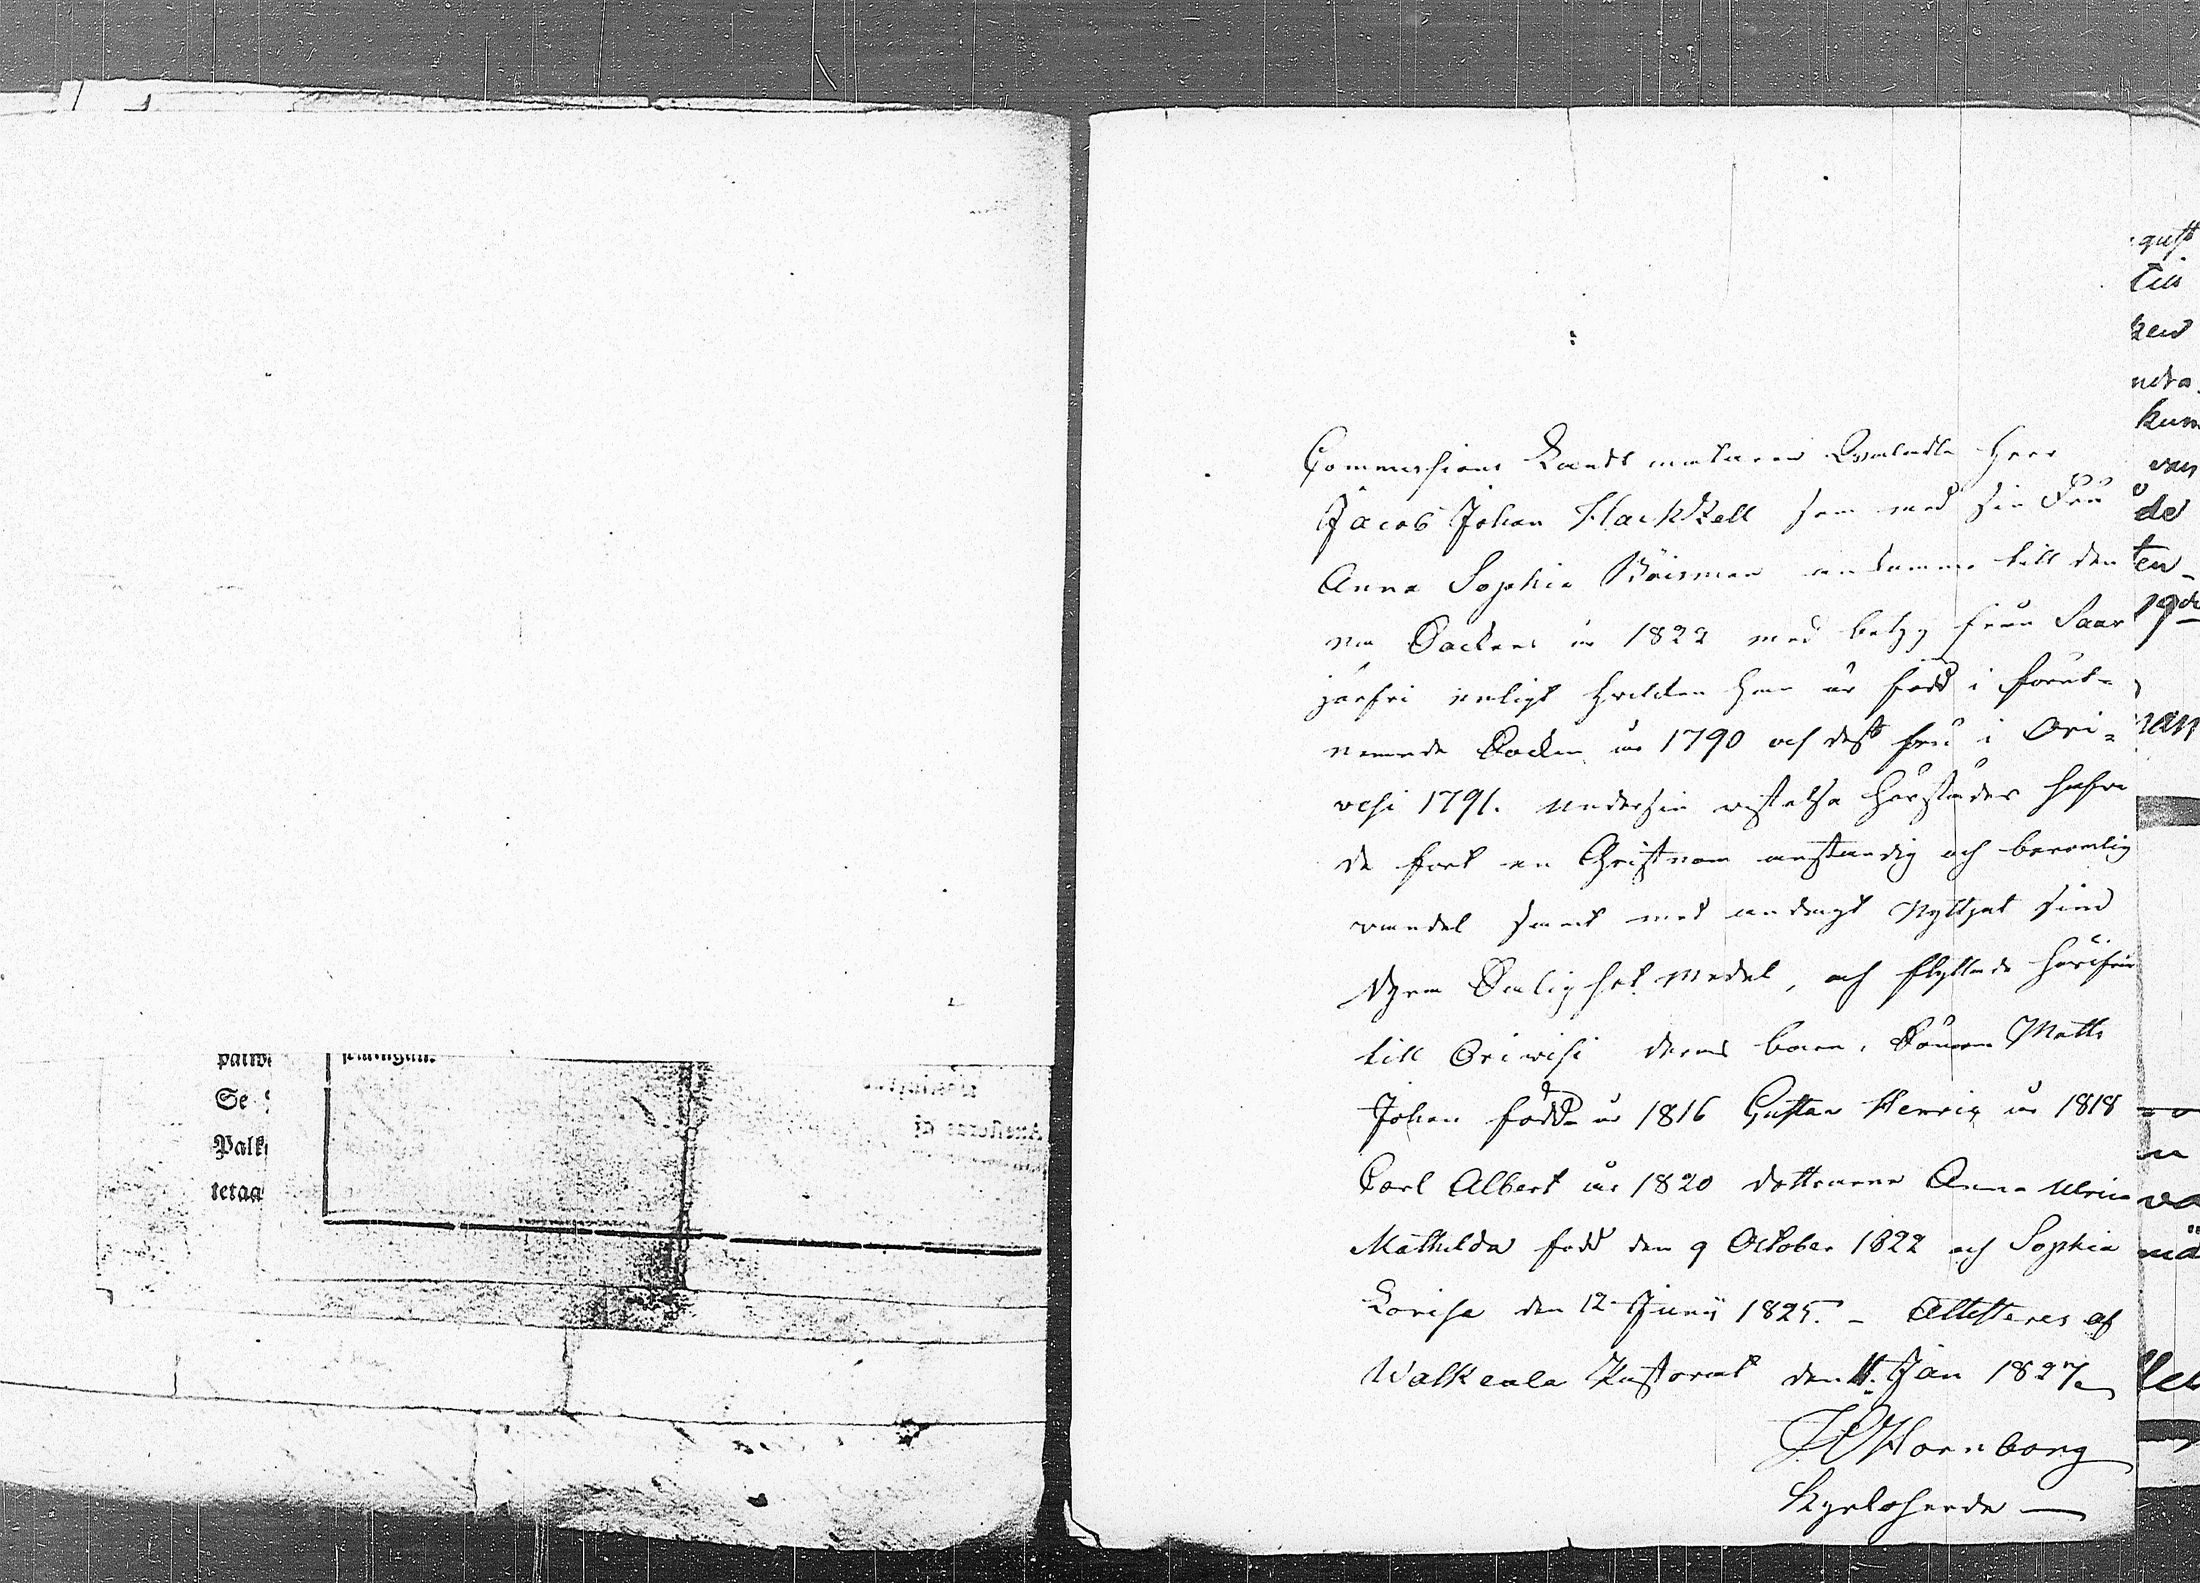 Commissions Landtmätaren Herr
Jacob Johan Hackzell som med sin Fru
Anna Sophia Böisman ankommo till den
na Socken år 1822 med betyg från Saar
järfvi enligt hvilken han är född i förut-
nemnde Socken år 1790 och dess fru i Ori=
vesi 1791. Under sin vistelse härstädes hafva
de fört en Christnom anständig och berömlig
vandel samt med andagt nyttjat sine
dyra Salighets medel, och flyttade härifrån
till Orivesi deras barn, Sönerne Matts
Johan född år 1816 Gustav Henric år 1818
Carl Albert år 1820 döttrarne Anna Ulrica
Mathilda född den 9 October 1822 och Sophia
Lovisa den 12 Junii 1825. - Attesteras af
Walkeala Pastorat den 11. Jan 1827
Hornborg
Kyrkoherde
Se
Palk
tetaa
gust
till
ken
kun
de
ten
19de
man